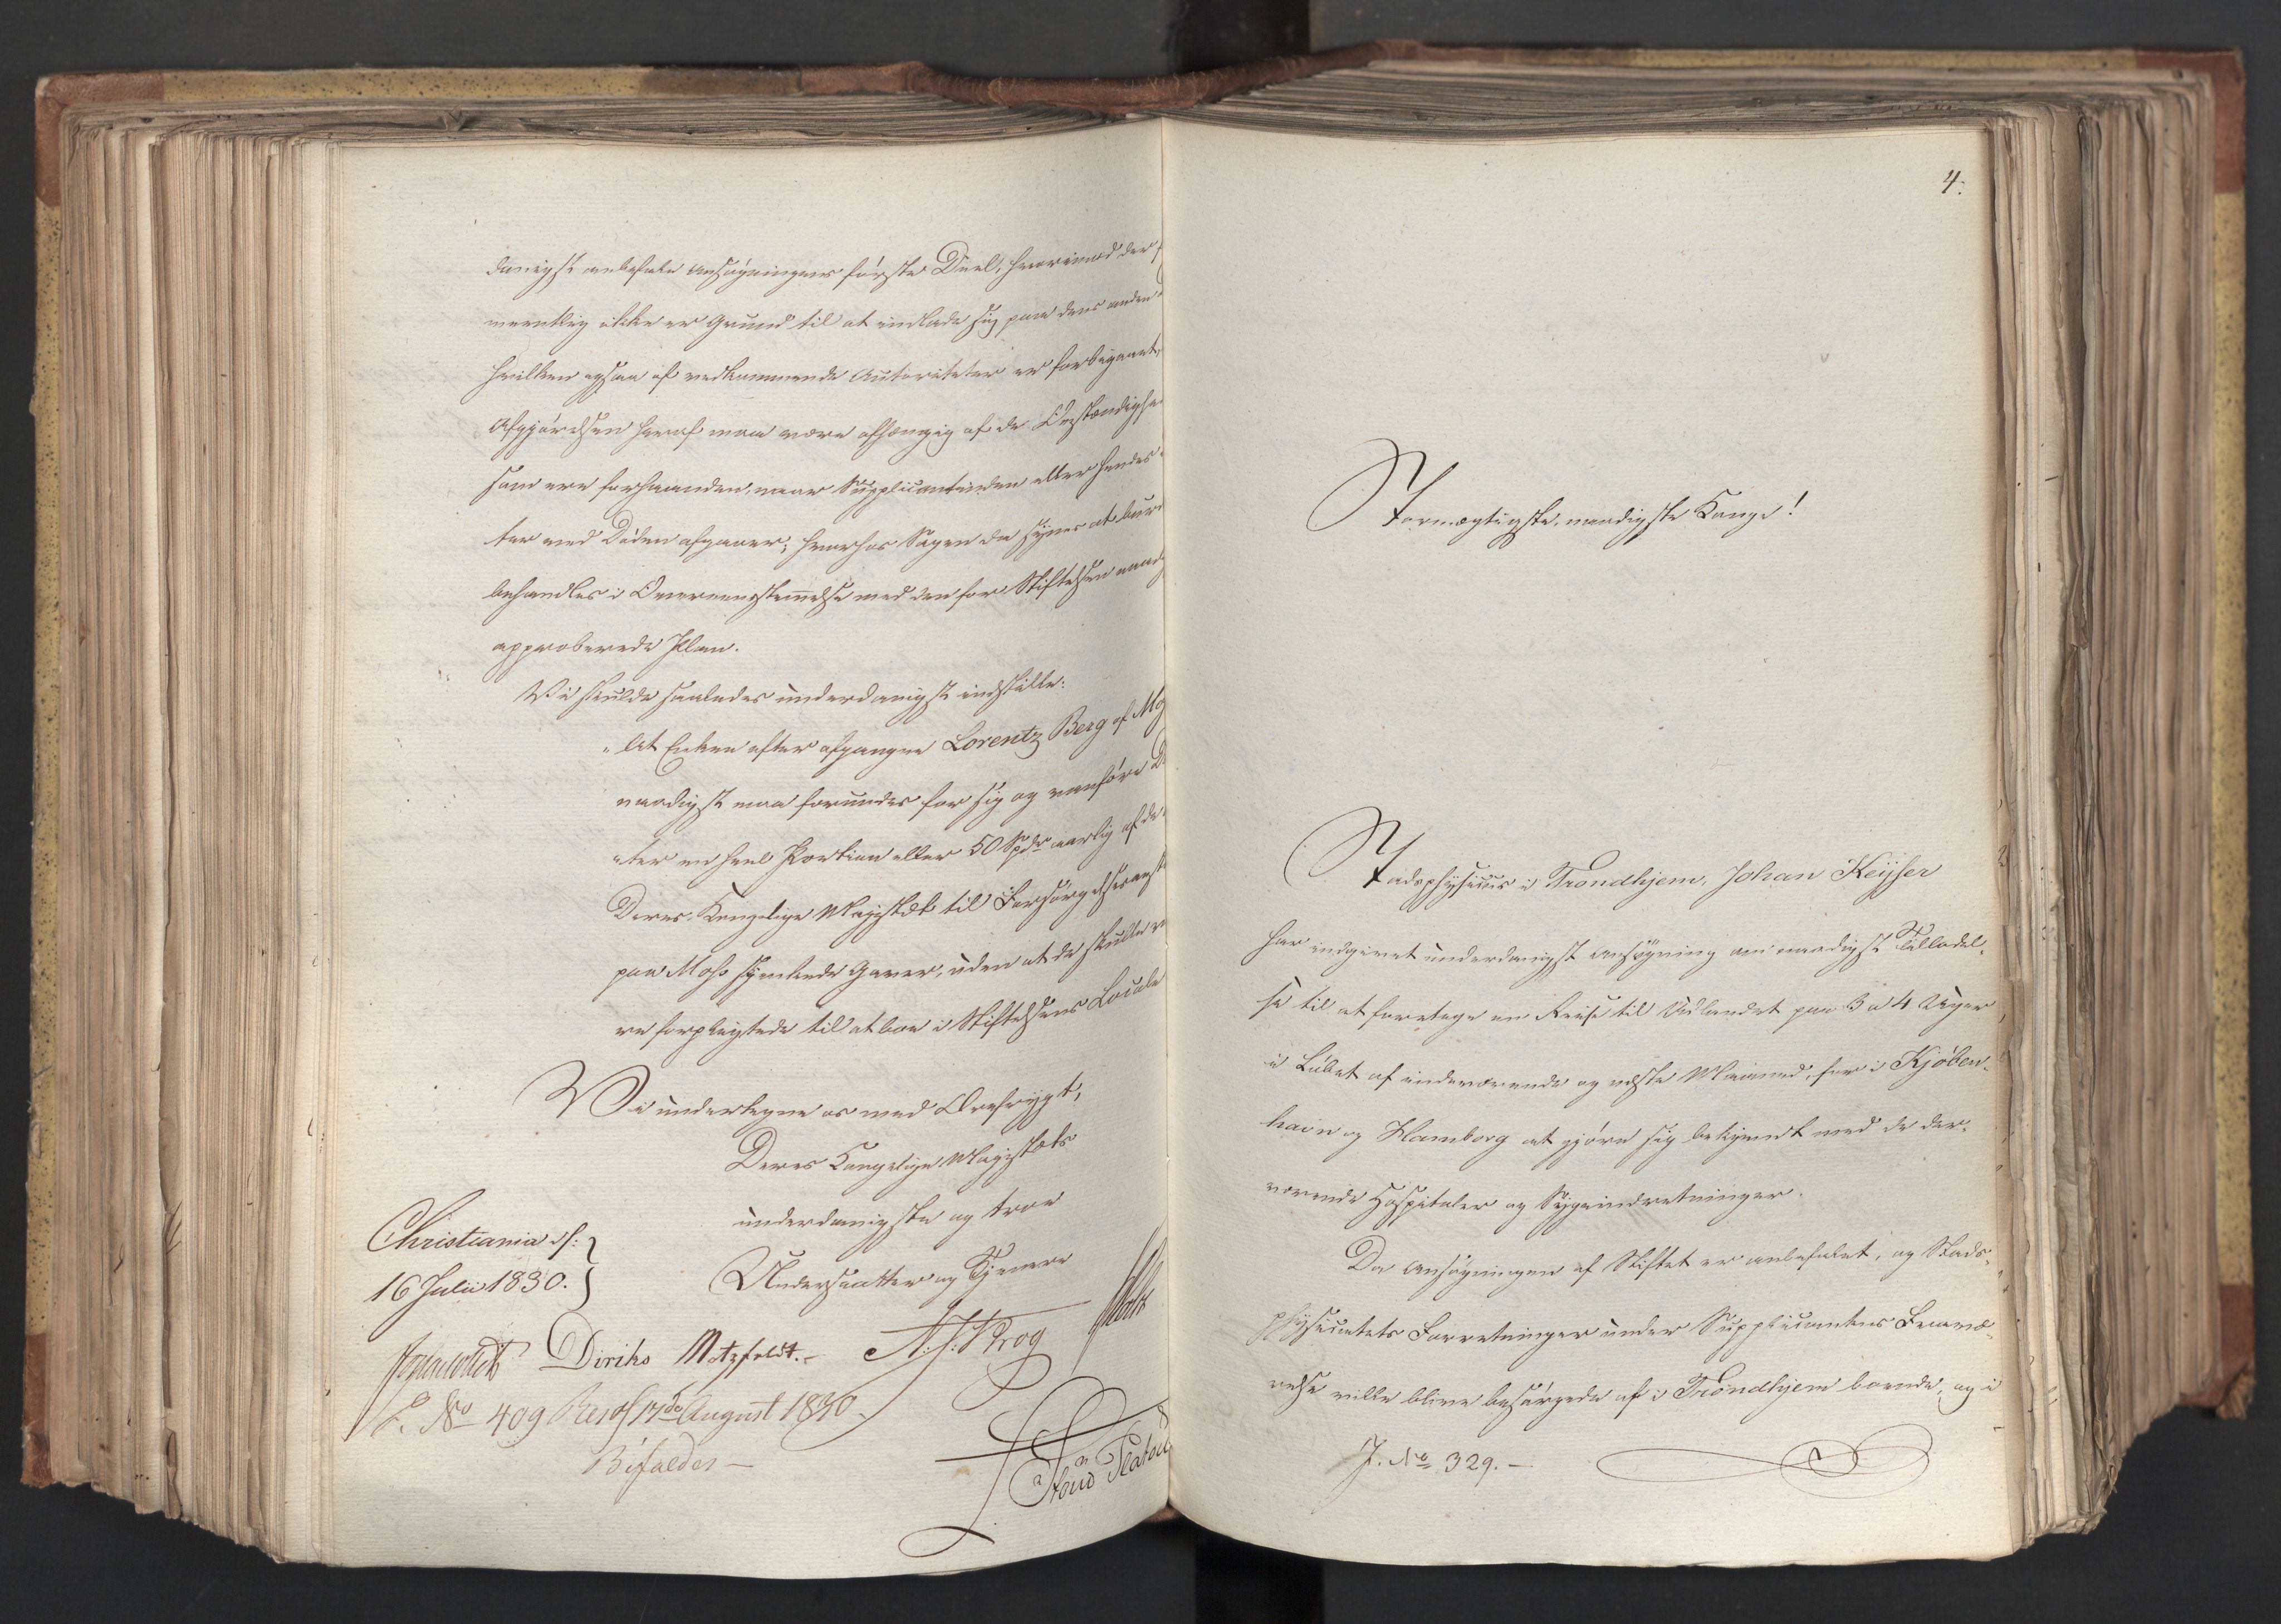 danigst anbefale Ansøgningens første Deel, hvorimod der
meentlig ikke er Grund til at indlade sig paa dens anden
hvilken ogsaa af vedkommende Autoriteter er forbigaaet,
Afgjørelsen heraf maa være afhængig af de Omstændighe
som ere forhaanden, naar Supplicantinden eller hendes
ter ved Døden afgaaer; hvorhos Sagen da synes at bur
behandles i Overeensstemmelse med den for Stiftelsen naad
approberede Plan.
Vi skulde saaledes underdanigst indstille:
"At Enken efter afgangne Lorentz Berg af Mo
naadigst maa forundes for sig og vanføre D
ater en heel Portion eller 50 Spdr aarlig af de
Deres Kongelige Majestæt til Forsørgelsesanst
paa Moss skjenkede Gaver, uden at de skulle v
re forpligtede til at boe i Stiftelsens Locale
Vi undertegne os med Ærefrygt,
Deres Kongelige Majestæts
underdanigste og troe
Undersaatter og Tjenere
Christiania d:
16 Julii 1830.
Diriks Motzfeldt. Krog
L. No 409 Resol 17de August 1830.
Bifaldes
4.
Stormægtigste, naadigste Konge!
Stadsphysicus i Trondhjem, Johan Keyser
har indgivet underdanigst Ansøgning om naadigst Tilladel-
se til at foretage en Reise til Udlandet paa 3 a 4 Uger
i Løbet af indeværende og næste Maaned, for i Kjøben-
havn og Hamborg at gjøre sig bekjendt med de der-
værende Hospitaler og Sygeindretninger.
Da Ansøgningen af Stiftet er anbefalet, og Stads-
physicatets Forretninger under Supplicantens Fravæ-
relse ville blive besørgede af i Trondhjem boende, og i
J. No 329.